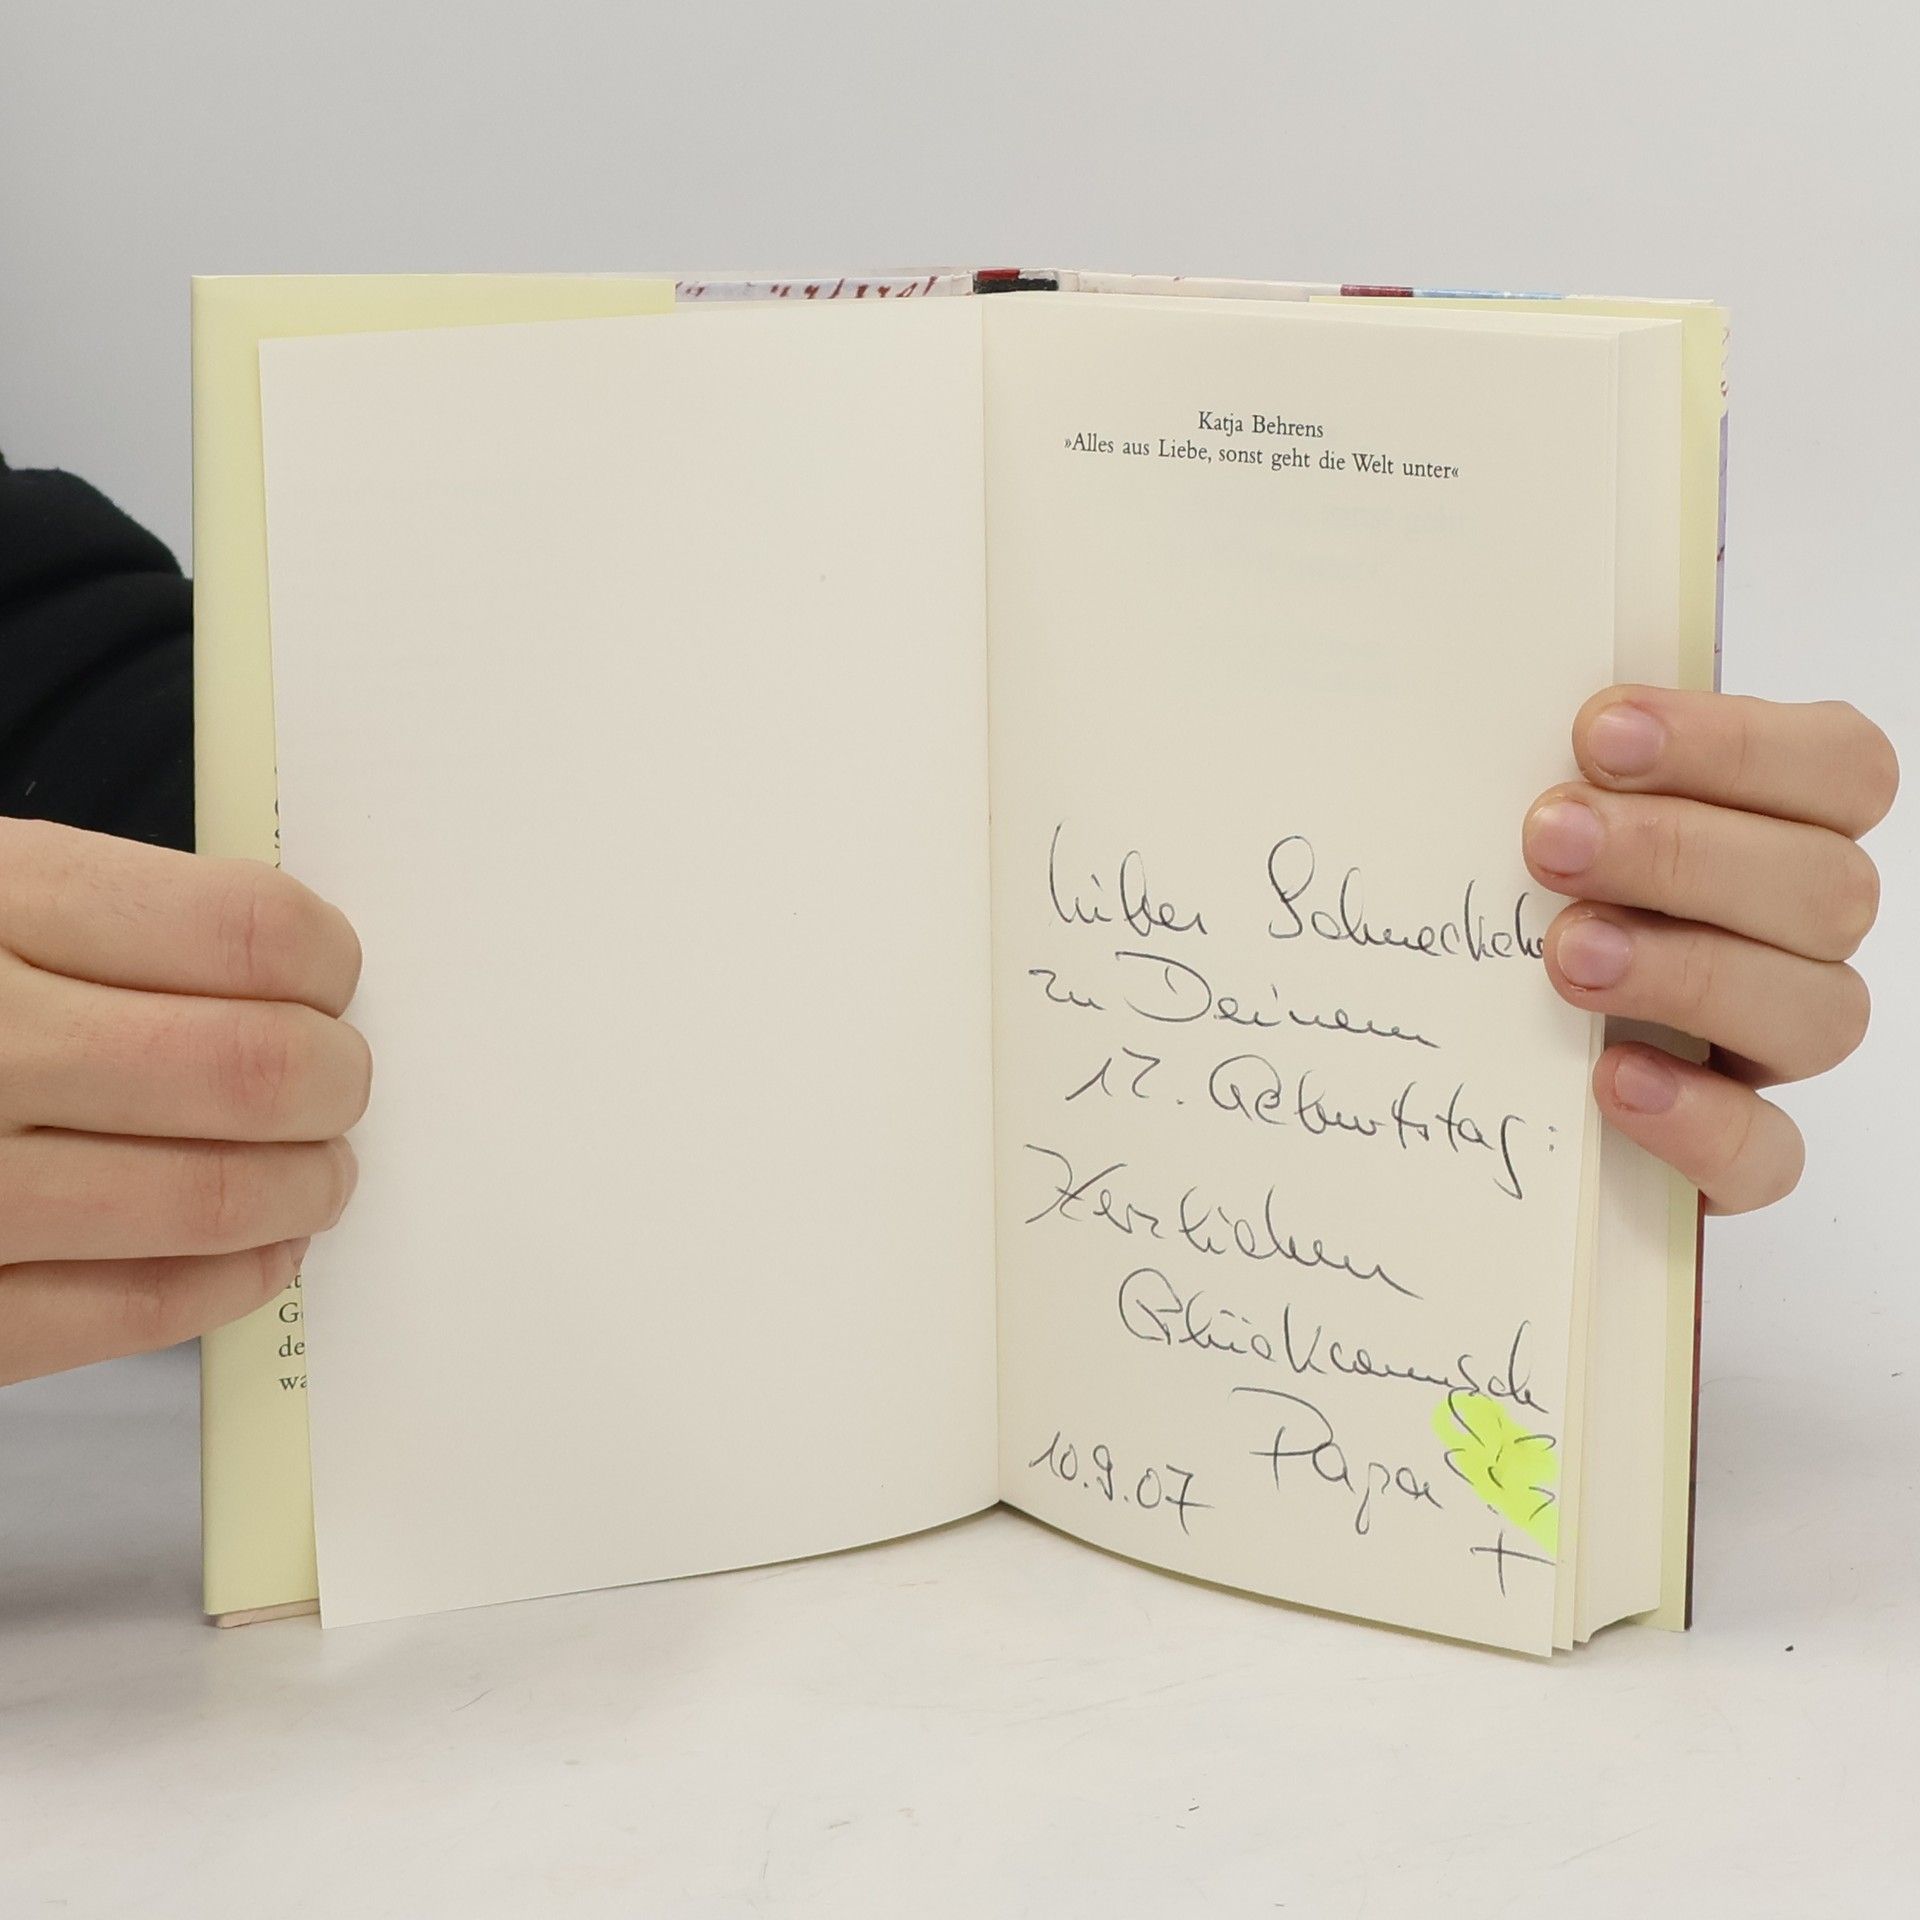 Katja Behrens
»Alles aus Liebe, sonst geht die Welt unter«
Liebes Schneckche
zu Deinem
17. Geburtstag:
Herzlichen
Glückwunsch
10.9.07 Papa
G
de
wa